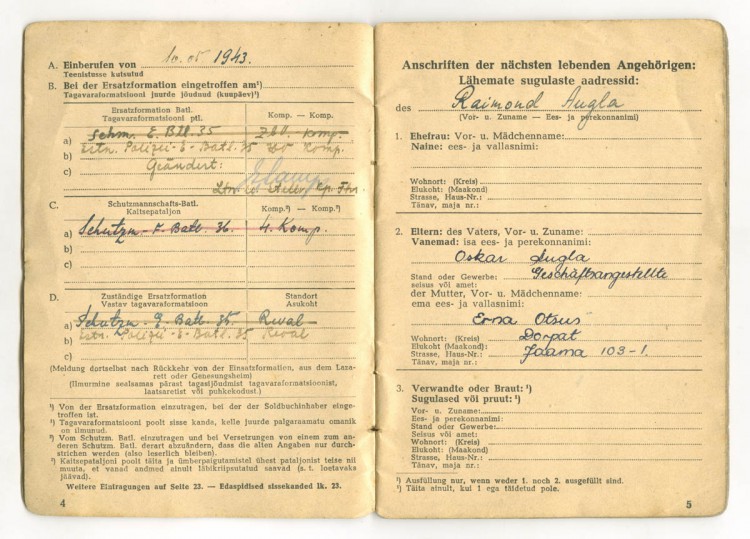 A. Einberufen von 10. 05 1943.
Teenistusse kutsutud
B. Bei der Ersatzformation eingetroffen am¹)
Tagavaraformatsiooni juurde jõudnud (kuupäev)¹)
Ersatzformation Batl. Komp. — Komp.
Tagavaraformatsiooni ptl.
a) Schm. E. Btl. 35 Komp.
b) Estn. Polizei-E-Batl. 35 Komp.
c) Geändert:
Ltn. u. Komp.
C. Schutzmannschafts-Batl. Komp.²) — Komp.³)
Kaitsepataljon
a) Schutzm. - F. Batl. 36. 4. Komp.
b)
c)
D. Zuständige Ersatzformation Standort
Vastav tagavaraformatsioon Asukoht
a) Schutzm. E. Batl. 35. Reval
b) Estn. Polizei-E-Batl. 35 Reval
c)
(Meldung dortselbst nach Rückkehr von der Einsatzformation, aus dem Laza-
rett oder Genesungsheim)
(Ilmurmine sealsamas pärast tagasijõudmist tagavaraformatsioonist,
laatsaretist või puhkekodust.)
¹) Von der Ersatzformation einzutragen, bei der der Soldbuchinhaber einge-
troffen ist.
¹) Tagavaraformatsiooni poolt sisse kande, kelle juurde palgaraamatu omanik
on ilmunud.
²) Vom Schutzm. Batl. einzutragen und bei Versetzungen von einem zum an-
deren Schutzm. Batl. derart abzuändern, dass die alten Angaben nur durch-
strichen werden (also leserlich bleiben).
²) Kaitsepataljoni poolt täita ja ümberpaigutamistel ühest pataljonist teise nii
muuta, et vanad andmed ainult läbikriipsutatud saavad (s. t. loetavaks
jäävad).
Weitere Eintragungen auf Seite 23. — Edaspidised sissekanded lk. 23.
4
Anschriften der nächsten lebenden Angehörigen:
Lähemate sugulaste aadressid:
des Raimond Augla
(Vor- u. Zuname — Ees- ja perekonnanimi)
1. Ehefrau: Vor- u. Mädchenname:
Naine: ees- ja vallasnimi:
Wohnort: (Kreis)
Elukoht: (Maakond)
Strasse, Haus-Nr.:
Tänav, maja nr.:
2. Eltern: des Vaters, Vor- u. Zuname:
Vanemad: isa ees- ja perekonnanimi:
Oskar Augla
Stand oder Gewerbe: Geschäftsangestellte
seisus või amet:
der Mutter, Vor- u. Mädchenname:
ema ees- ja vallasnimi:
Erna Otsus
Wohnort: (Kreis) Dorpat
Elukoht (Maakond):
Strasse, Haus-Nr.: Jaama 103-1.
Tänav, maja nr.:
3. Verwandte oder Braut: ¹)
Sugulased või pruut: ¹)
Vor- u. Zuname:
Ees- ja perekonnanimi:
Stand oder Gewerbe:
Seisus või amet:
Wohnort: (Kreis)
Elukoht: (Maakond)
Strasse, Haus-Nr.:
Tänav, maja nr.:
¹) Ausfüllung nur, wenn weder 1. noch 2. ausgefüllt sind.
¹) Täita ainult, kui 1 ega täidetud pole.
5